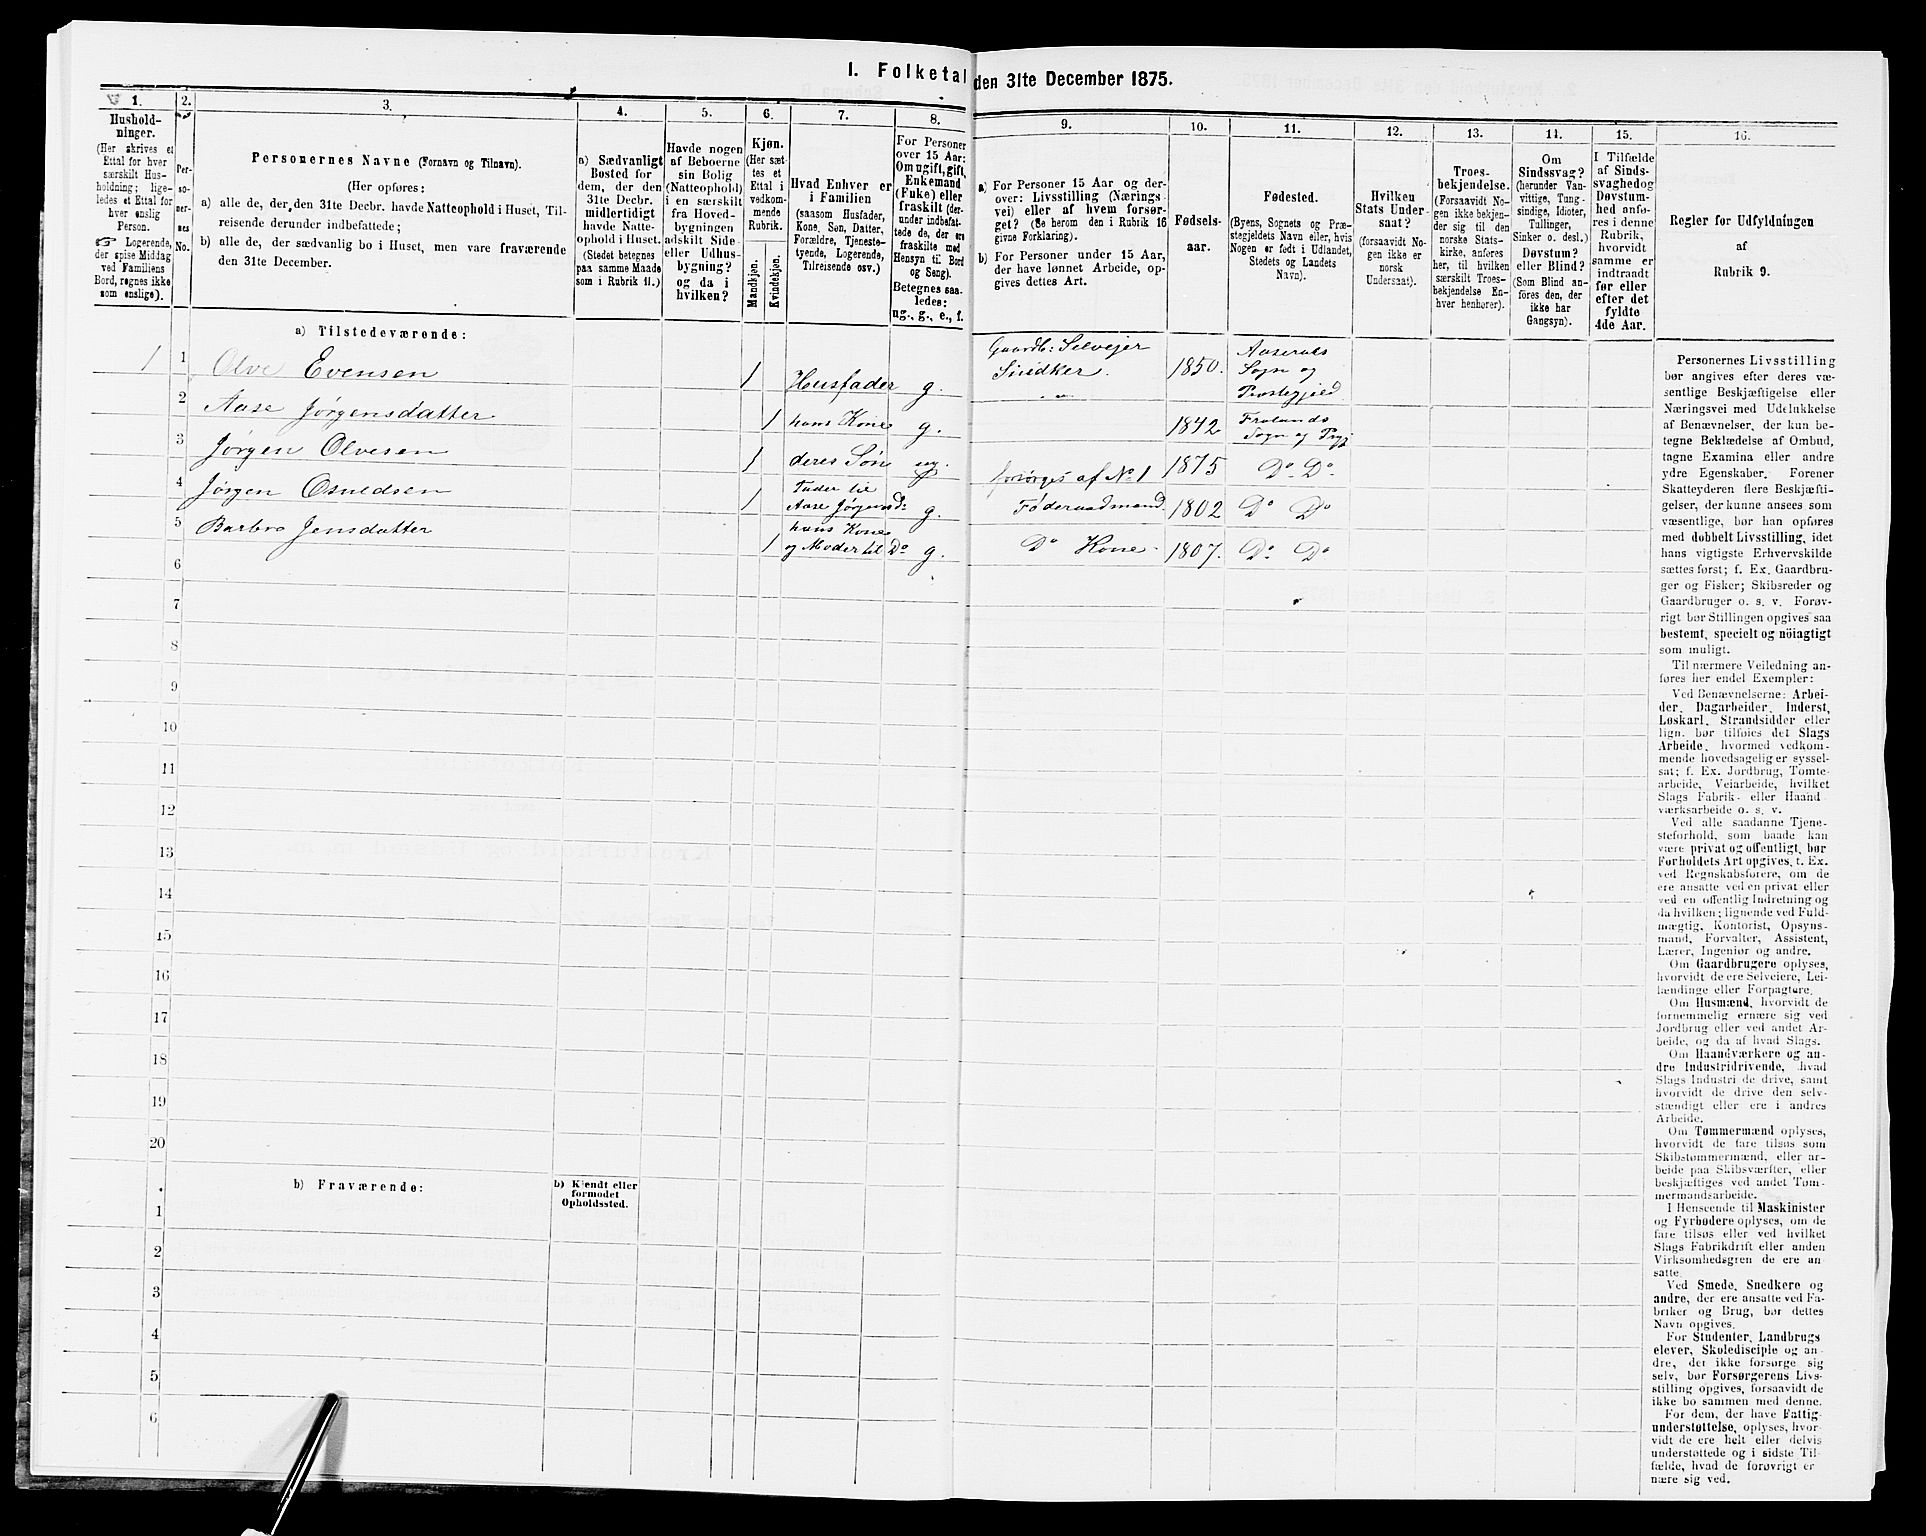 I. Folketal den 31te December 1875.
1.
Hushold-
ninger.
(Her skrives et
Ettal for hver
særskilt Hus-
holdning; lige-
ledes et Ettal for
hver enslig
Person.
☞ Logerende,
der spise Middag
ved Familiens
Bord, regnes ikke
som enslige).
2.
Per-
so-
ner-
nes
No.
3.
Personernes Navne (Fornavn og Tilnavn).
(Her opføres:
a) alle de, der den 31te Decbr. havde Natteophold i Huset, Til-
reisende derunder indbefattede;
b) alle de, der sædvanlig bo i Huset, men vare fraværende
den 31te December.
4.
a) Sædvanligt
Bosted for
dem, der den
31te Decbr.
midlertidigt
havde Natte-
ophold i Huset.
(Stedet betegnes
paa samme Maade
som i Rubrik 11.)
5.
Havde nogen
af Beboerne
sin Bolig
(Natteophold)
i en særskilt
fra Hoved-
bygningen
adskilt Side-
eller Udhus-
bygning?
og da i
hvilken?
6.
Kjøn.
(Her sæt-
tes et
Ettal i
vedkom-
mende
Rubrik.
Mandkjøn.
Kvindekjøn.
7.
Hvad Enhver er
i Familien
(saasom Husfader,
Kone, Søn, Datter,
Forældre, Tjeneste-
tyende, Logerende,
Tilreisende osv.)
8.
For Personer
over 15 Aar:
Om ugift, gift,
Enkemand
(Enke) eller
fraskilt (der-
under indbefat-
tede de, der ere
fraskilte med
Hensyn til Bord
og Seng).
Betegnes saa-
ledes:
ug., g., e., f.
9.
a) For Personer 15 Aar og der-
over: Livsstilling (Nærings-
vei) eller af hvem forsør-
get? (Se herom den i Rubrik 16
givne Forklaring).
b) For Personer under 15 Aar,
der have lønnet Arbeide, op-
gives dettes Art.
10.
Fødsels-
aar.
11.
Fødested.
(Byens, Sognets og Præ-
stegjeldets Navn eller, hvis
Nogen er født i Udlandet,
Stedets og Landets
Navn).
12.
Hvilken
Stats Under-
saat?
(forsaavidt No-
gen ikke er
norsk
Undersaat).
13.
Troes-
bekjendelse.
(Forsaavidt No-
gen ikke bekjen-
der sig til den
norske Stats-
kirke, anføres
her, til hvilken
særskilt Troes-
bekjendelse En-
hver henhører).
14.
Om
Sindssvag?
(herunder Van-
vittige, Tung-
sindige, Idioter,
Tullinger,
Sinker o. desl.)
Døvstum?
eller Blind?
(Som Blind an-
føres den, der
ikke har
Gangsyn).
15.
I Tilfælde
af Sinds-
svaghed og
Døvstum-
hed anfø-
res i denne
Rubrik,
hvorvidt
samme er
indtraadt
før eller
efter det
fyldte
4de Aar.
16.
Regler for Udfyldningen
af
Rubrik 9.
a) Tilstedeværende:
1 1 Olve Evensen 1 Husfader g. Gaardb: Selveier Snedker. 1850. Aaserals Sogn og Præstegjeld
2 Aase Jørgensdatter 1 hans Kone g. 1842 Frolands Sogn og Prgj
3 Jørgen Olvesen 1 deres Søn ug. forsørges af No 1 1875 Do Do
4 Jørgen Osuldsen 1 Fader til Aase Jørgensd: g. Føderaadsmand 1802 Do Do
5 Barbro Jensdatter 1 hans Kone og Moder til Do g. Do Kone 1807. Do Do
6
7
8
9
10
11
12
13
14
15
16
17
18
19
20
b) Fraværende:
b) Kjendt eller
formodet
Opholdssted.
1
2
3
4
5
6
Personernes Livsstilling
bør angives efter deres væ-
sentlige Beskjæftigelse eller
Næringsvei med Udelukkelse
af Benævnelser, der kun be-
tegne Beklædelse af Ombud,
tagne Examina eller andre
ydre Egenskaber. Forener
Skatteyderen flere Beskjæfti-
gelser, der kunne ansees som
væsentlige, bør han opføres
med dobbelt Livsstilling, idet
hans vigtigste Erhvervskilde
sættes først; f. Ex. Gaardbru-
ger og Fisker; Skibsreder og
Gaardbruger o. s. v. Forøv-
rigt bør Stillingen opgives saa
bestemt, specielt og nöiagtigt
som muligt.
Til nærmere Veiledning an-
føres her endel Exempler:
Ved Benævnelserne: Arbei-
der, Dagarbeider, Inderst,
Løskarl, Strandsidder eller
lign. bør tilføies det Slags
Arbeide, hvormed vedkom-
mende hovedsagelig er syssel-
sat; f. Ex. Jordbrug, Tomte-
arbeide, Veiarbeide, hvilket
Slags Fabrik- eller Haand
værksarbeide o. s. v.
Ved alle saadanne Tjene-
steforhold, som baade kan
være privat og offentligt, bør
Forholdets Art opgives, f. Ex.
ved Regnskabsførere, om de
ere ansatte ved en privat eller
ved en offentlig Indretning og
da hvilken; lignende ved Fuld-
mægtig, Kontorist, Opsyns-
mand, Forvalter, Assistent,
Lærer, Ingeniør og andre.
Om Gaardbrugere oplyses,
hvorvidt de ere Selveiere, Lei-
lændinge eller Forpagtere.
Om Husmænd, hvorvidt de
fornemmelig ernære sig ved
Jordbrug eller ved andet Ar-
beide, og da af hvad Slags.
Om Haandværkere og an-
dre Industridrivende, hvad
Slags Industri de drive, samt
hvorvidt de drive den selv-
stændigt eller ere i andres
Arbeide.
Om Tømmermænd oplyses,
hvorvidt de fare tilsøs som
Skibstømmermænd, eller ar-
beide paa Skibsværfter, eller
beskjæftiges ved andet Tøm-
mermandsarbeide.
I Henseende til Maskinister
og Fyrbødere oplyses, om de
fare tilsøs eller ved hvilket
Slags Fabrikdrift eller anden
Virksomhedsgren de ere an-
satte.
Ved Smede, Snedkere og
andre, der ere ansatte ved Fa-
briker og Brug, bør dettes
Navn opgives.
For Studenter, Landbrugs
elever, Skoledisciple og an-
dre, der ikke forsørge sig
selv, bør Forsørgerens Livs-
stilling opgives, forsaavidt de
ikke bo sammen med denne.
For dem, der have Fattig-
understøttelse, oplyses, hvor-
vidt de ere helt eller delvis
understøttede og i sidste Til-
fælde, hvad de forøvrigt er
nære sig ved.